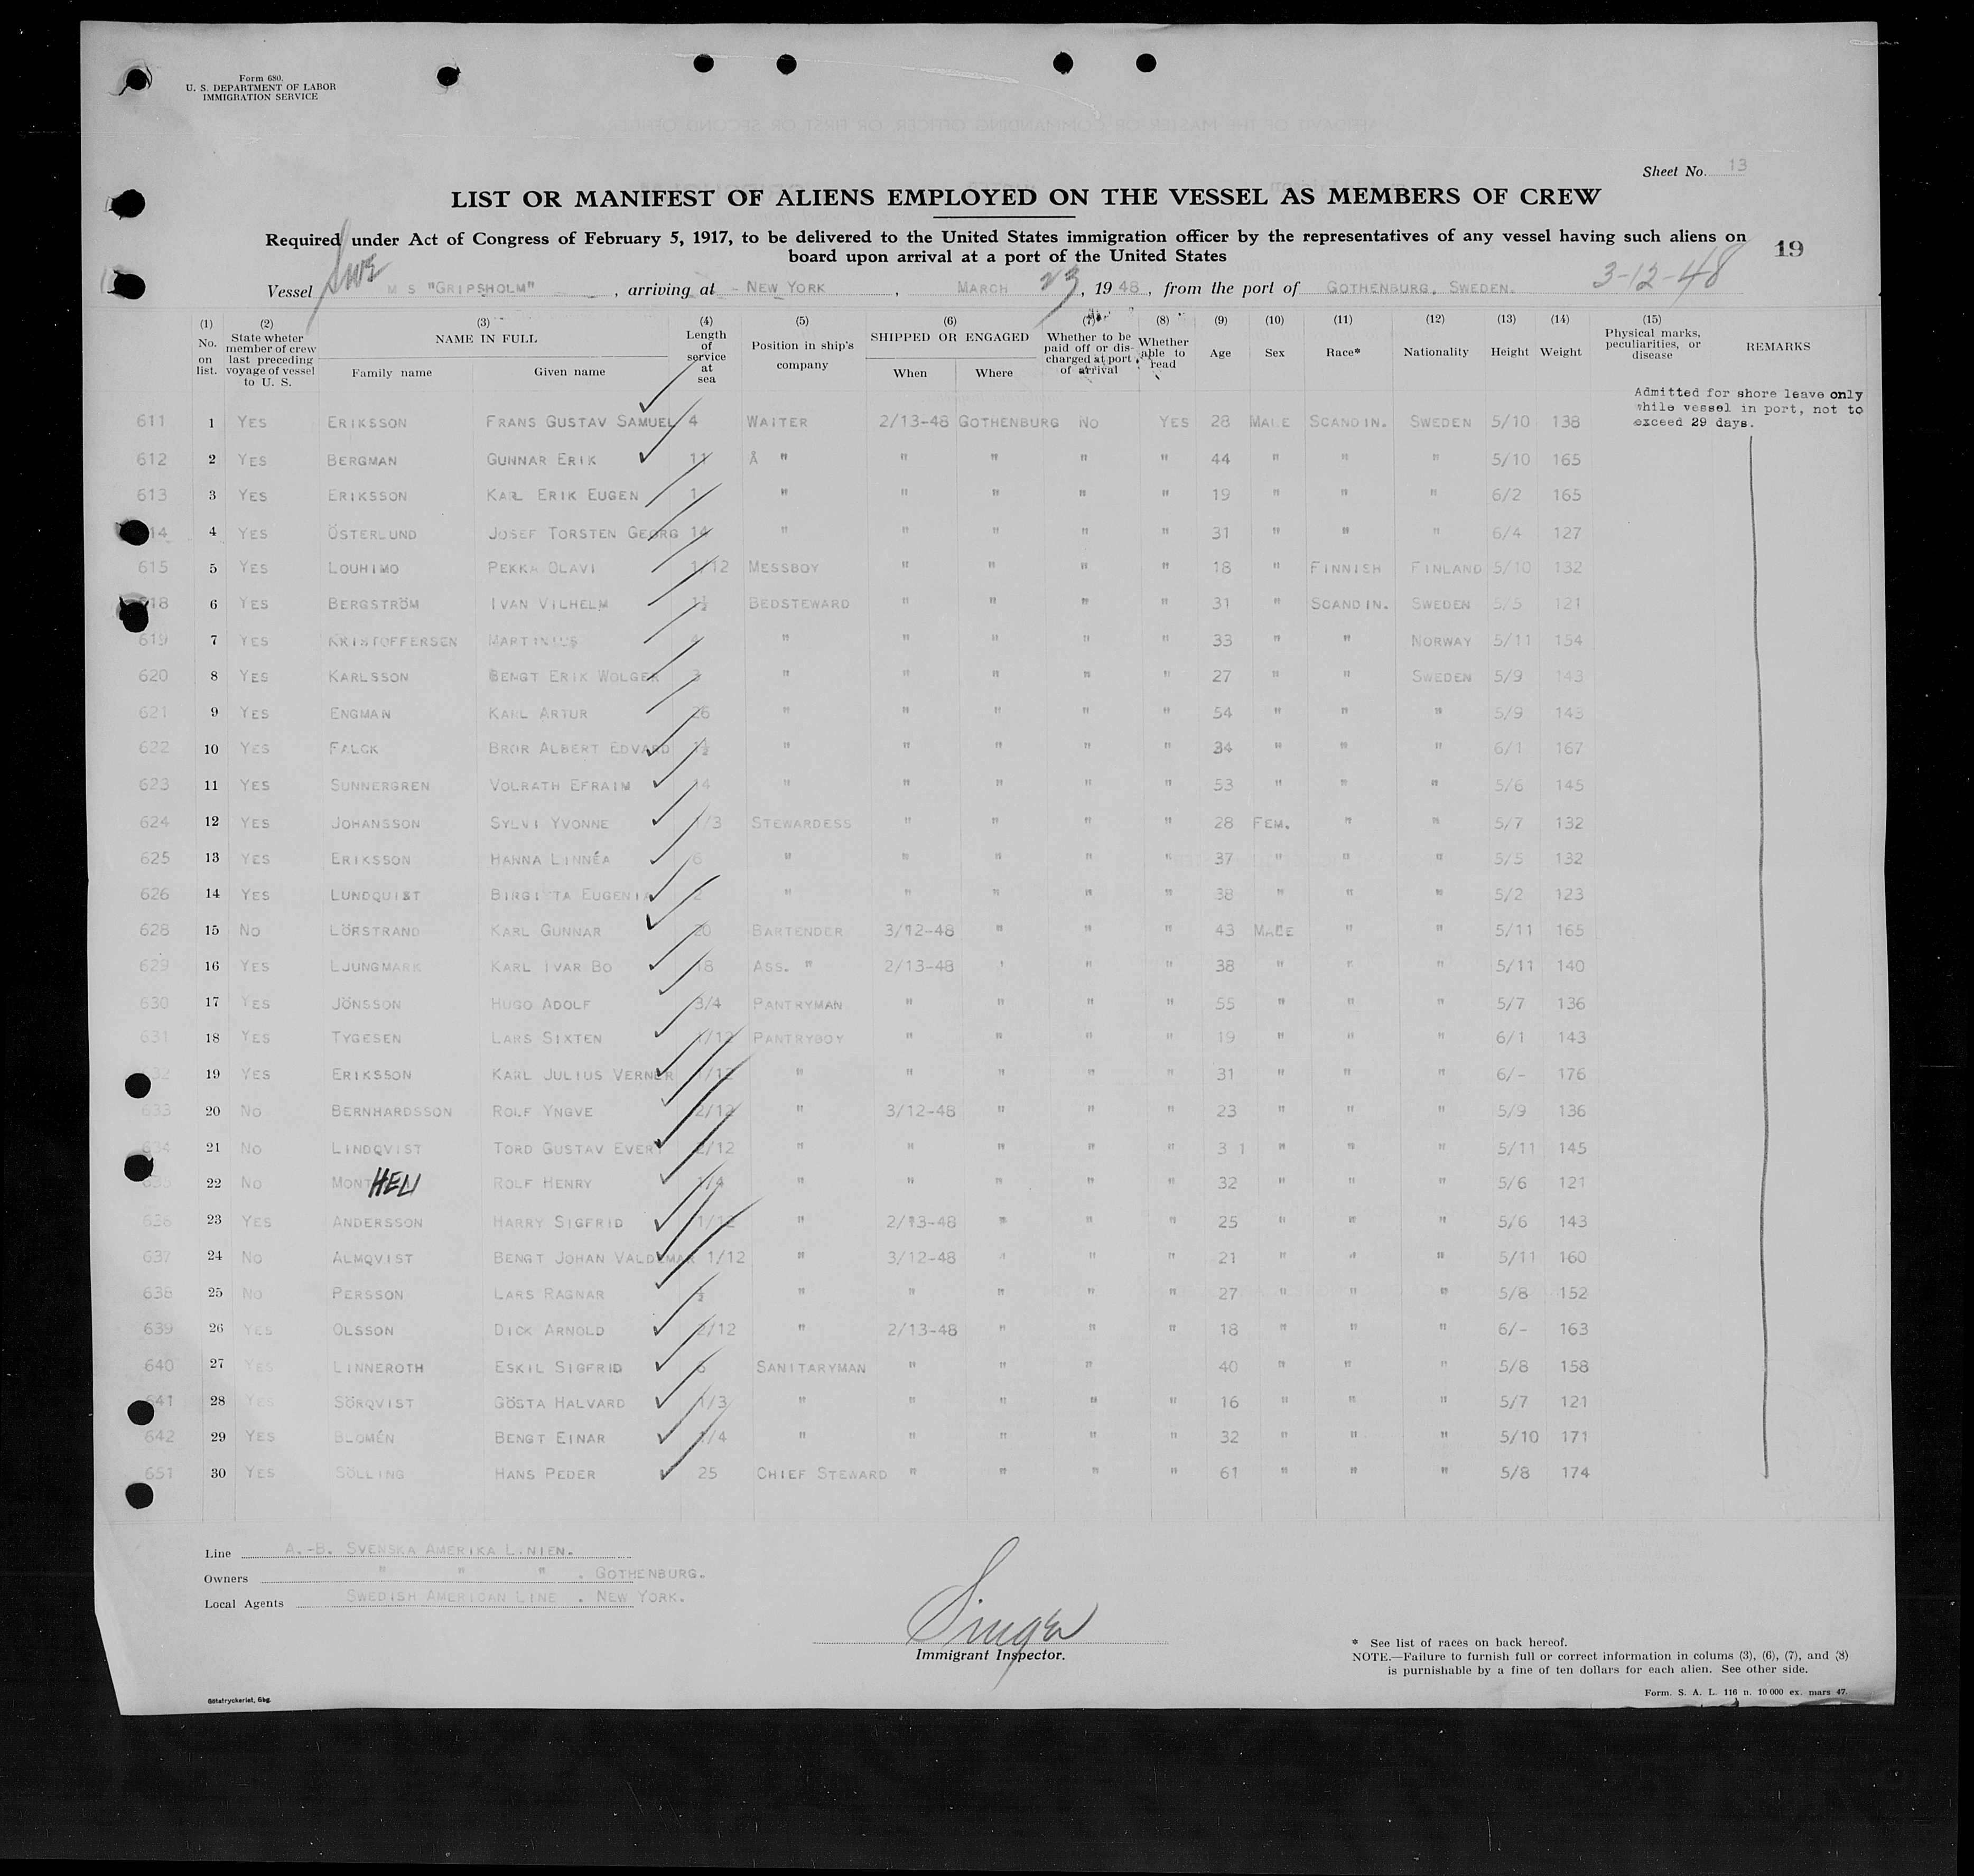 Form 680.
U. S. DEPARTMENT OF LABOR
IMMIGRATION SERVICE
Sheet No. 13
LIST OR MANIFEST OF ALIENS EMPLOYED ON THE VESSEL AS MEMBERS OF CREW
Required under Act of Congress of February 5, 1917, to be delivered to the United States immigration officer by the representatives of any vessel having such aliens on
board upon arrival at a port of the United States
19
Swe
3-12-48
Vessel M S "GRIPSHOLM", arriving at NEW YORK, MARCH 23, 1948, from the port of GOTHENBURG, SWEDEN.
(1) No. on list. (2) State wheter member of crew last preceding voyage of vessel to U. S. (3) NAME IN FULL Family name Given name (4) Length of service at sea (5) Position in ship's company (6) SHIPPED OR ENGAGED When Where (7) Whether to be paid off or discharged at port of arrival (8) Whether able to read (9) Age (10) Sex (11) Race* (12) Nationality (13) Height (14) Weight (15) Physical marks, peculiarities, or disease REMARKS
Admitted for shore leave only
while vessel in port, not to
exceed 29 days.
611 1 YES ERIKSSON FRANS GUSTAV SAMUEL 4 WAITER 2/13-48 GOTHENBURG NO YES 28 MALE SCANDIN. SWEDEN 5/10 138
612 2 YES BERGMAN GUNNAR ERIK 11 Å " " " " " 44 " " " 5/10 165
613 3 YES ERIKSSON KARL ERIK EUGEN 1 " " " " " 19 " " " 6/2 165
14 4 YES ÖSTERLUND JOSEF TORSTEN GEORG 14 " " " " " 31 " " " 6/4 127
615 5 YES LOUHIMO PEKKA OLAVI 1/12 MESSBOY " " " " 18 " FINNISH FINLAND 5/10 132
18 6 YES BERGSTRÖM IVAN VILHELM 1½ BEDSTEWARD " " " " 31 " SCANDIN. SWEDEN 5/5 121
619 7 YES KRISTOFFERSEN MARTINIUS 4 " " " " " 33 " " NORWAY 5/11 154
620 8 YES KARLSSON BENGT ERIK WOLGER 3 " " " " " 27 " " SWEDEN 5/9 143
621 9 YES ENGMAN KARL ARTUR 26 " " " " " 54 " " " 5/9 143
622 10 YES FALCK BROR ALBERT EDVARD 1½ " " " " " 34 " " " 6/1 167
623 11 YES SUNNERGREN VOLRATH EFRAIM 14 " " " " " 53 " " " 5/6 145
624 12 YES JOHANSSON SYLVI YVONNE 1/3 STEWARDESS " " " " 28 FEM. " " 5/7 132
625 13 YES ERIKSSON HANNA LINNÉA 6 " " " " " 37 " " " 5/5 132
626 14 YES LUNDQUIST BIRGITTA EUGENIA 2 " " " " " 38 " " " 5/2 123
628 15 NO LÖRSTRAND KARL GUNNAR 20 BARTENDER 3/12-48 " " " 43 MALE " " 5/11 165
629 16 YES LJUNGMARK KARL IVAR BO 18 ASS. " 2/13-48 " " " 38 " " " 5/11 140
630 17 YES JÖNSSON HUGO ADOLF 3/4 PANTRYMAN " " " " 55 " " " 5/7 136
631 18 YES TYGESEN LARS SIXTEN 1/12 PANTRYBOY " " " " 19 " " " 6/1 143
32 19 YES ERIKSSON KARL JULIUS VERNER 1/12 " " " " " 31 " " " 6/- 176
633 20 NO BERNHARDSSON ROLF YNGVE 2/12 " 3/12-48 " " " 23 " " " 5/9 136
634 21 NO LINDQVIST TORD GUSTAV EVERT 2/12 " " " " " 3 1 " " " 5/11 145
635 22 NO MONTHELI ROLF HENRY 1/4 " " " " " 32 " " " 5/6 121
636 23 YES ANDERSSON HARRY SIGFRID 1/12 " 2/13-48 " " " 25 " " " 5/6 143
637 24 NO ALMQVIST BENGT JOHAN VALDEMAR 1/12 " 3/12-48 " " " 21 " " " 5/11 160
638 25 NO PERSSON LARS RAGNAR ½ " " " " " 27 " " " 5/8 152
639 26 YES OLSSON DICK ARNOLD 2/12 " 2/13-48 " " " 18 " " " 6/- 163
640 27 YES LINNEROTH ESKIL SIGFRID 6 SANITARYMAN " " " 40 " " " 5/8 158
641 28 YES SÖRQVIST GÖSTA HALVARD 1/3 " " " " " 16 " " " 5/7 121
642 29 YES BLOMÉN BENGT EINAR 1/4 " " " " " 32 " " " 5/10 171
651 30 YES SÖLLING HANS PEDER 25 CHIEF STEWARD " " " " 61 " " " 5/8 174
Line A.-B. SVENSKA AMERIKA LINIEN.
Owners " " " . GOTHENBURG.
Local Agents SWEDISH AMERICAN LINE . NEW YORK.
Singer
Immigrant Inspector.
* See list of races on back hereof.
NOTE.—Failure to furnish full or correct information in colums (3), (6), (7), and (8)
is punishable by a fine of ten dollars for each alien. See other side.
Götatryckeriet, Gbg.
Form. S. A. L. 116 n. 10 000 ex. mars 47.